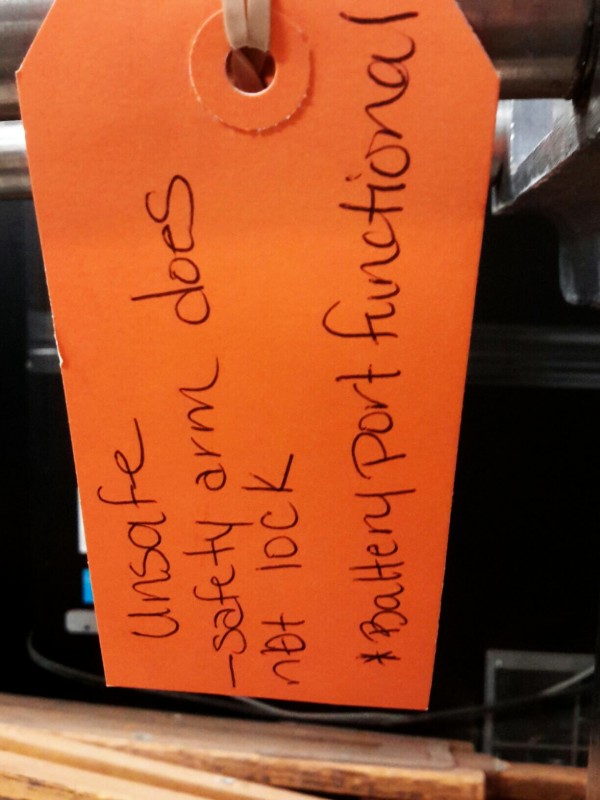 Unsafe
-safety arm does
not lock
*Battery port functional